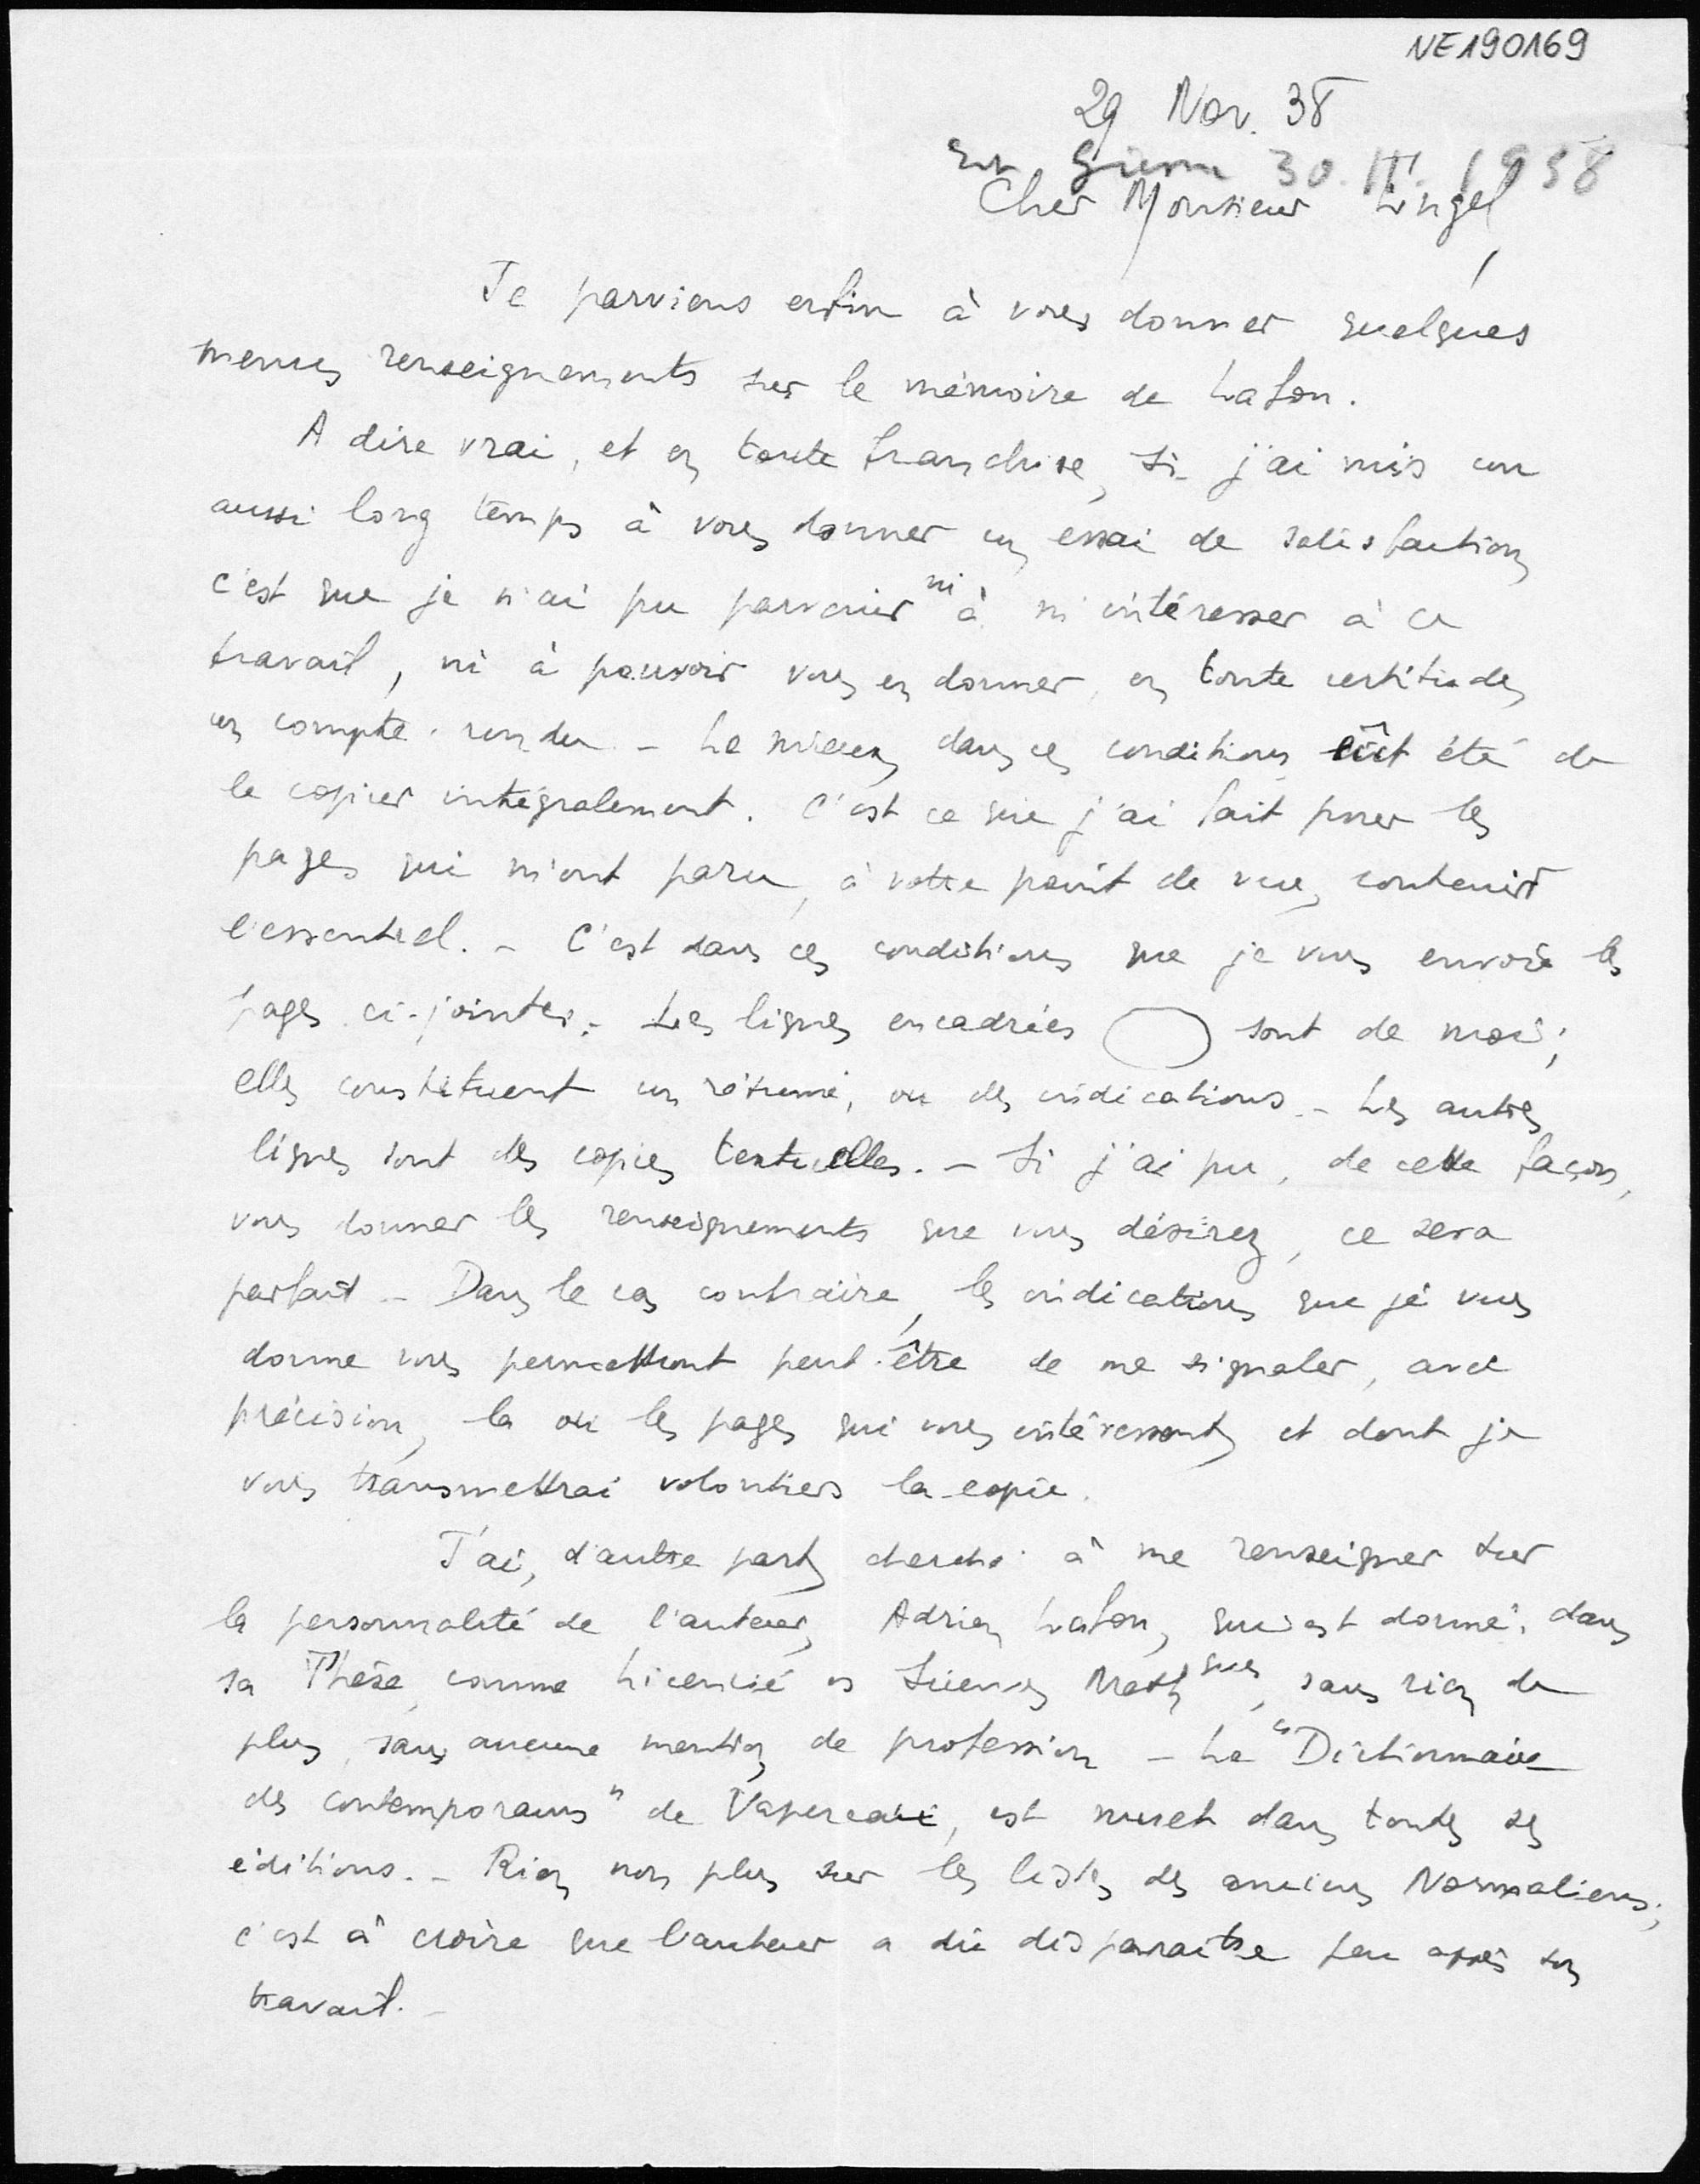 NE190169
29 Nov. 38
30. III. 1958
Cher Monsieur
Je parviens enfin à vous donner quelques
menus renseignements sur le mémoire de Lafon.
A dire vrai, et en toute franchise, si j'ai mis un
aussi long temps à vous donner un essai de satisfaction
c'est que je n'ai pu parvenir ni à m'intéresser à ce
travail, ni à pouvoir vous en donner, en toute certitude,
un compte-rendu. - Le mieux, dans ces conditions eût été de
le copier intégralement. C'est ce que j'ai fait pour les
pages qui m'ont paru, à votre point de vue, contenir
l'essentiel. - C'est dans ces conditions que je vous envoie les
pages ci-jointes. - Les lignes encadrées sont de moi;
elles constituent un résumé, ou des indications. - Les autres
lignes sont des copies textuelles. - Si j'ai pu, de cette façon,
vous donner les renseignements que vous désirez, ce sera
parfait - Dans le cas contraire, les indications que je vous
donne vous permettront peut-être de me signaler, avec
précision, la ou les pages qui vous intéressent, et dont je
vous transmettrai volontiers la copie.
J'ai, d'autre part, cherché à me renseigner sur
la personnalité de l'auteur, Adrien Lafon, qui est donné, dans
sa Thèse, comme Licencié es Sciences Math ques, sans rien de
plus, sans aucune mention de profession - Le "Dictionnaire
des contemporains" de Vapereau, est muet dans toutes ses
éditions. - Rien non plus sur les listes des anciens Normaliens;
c'est à croire que l'auteur a dû disparaître peu après son
travail. -